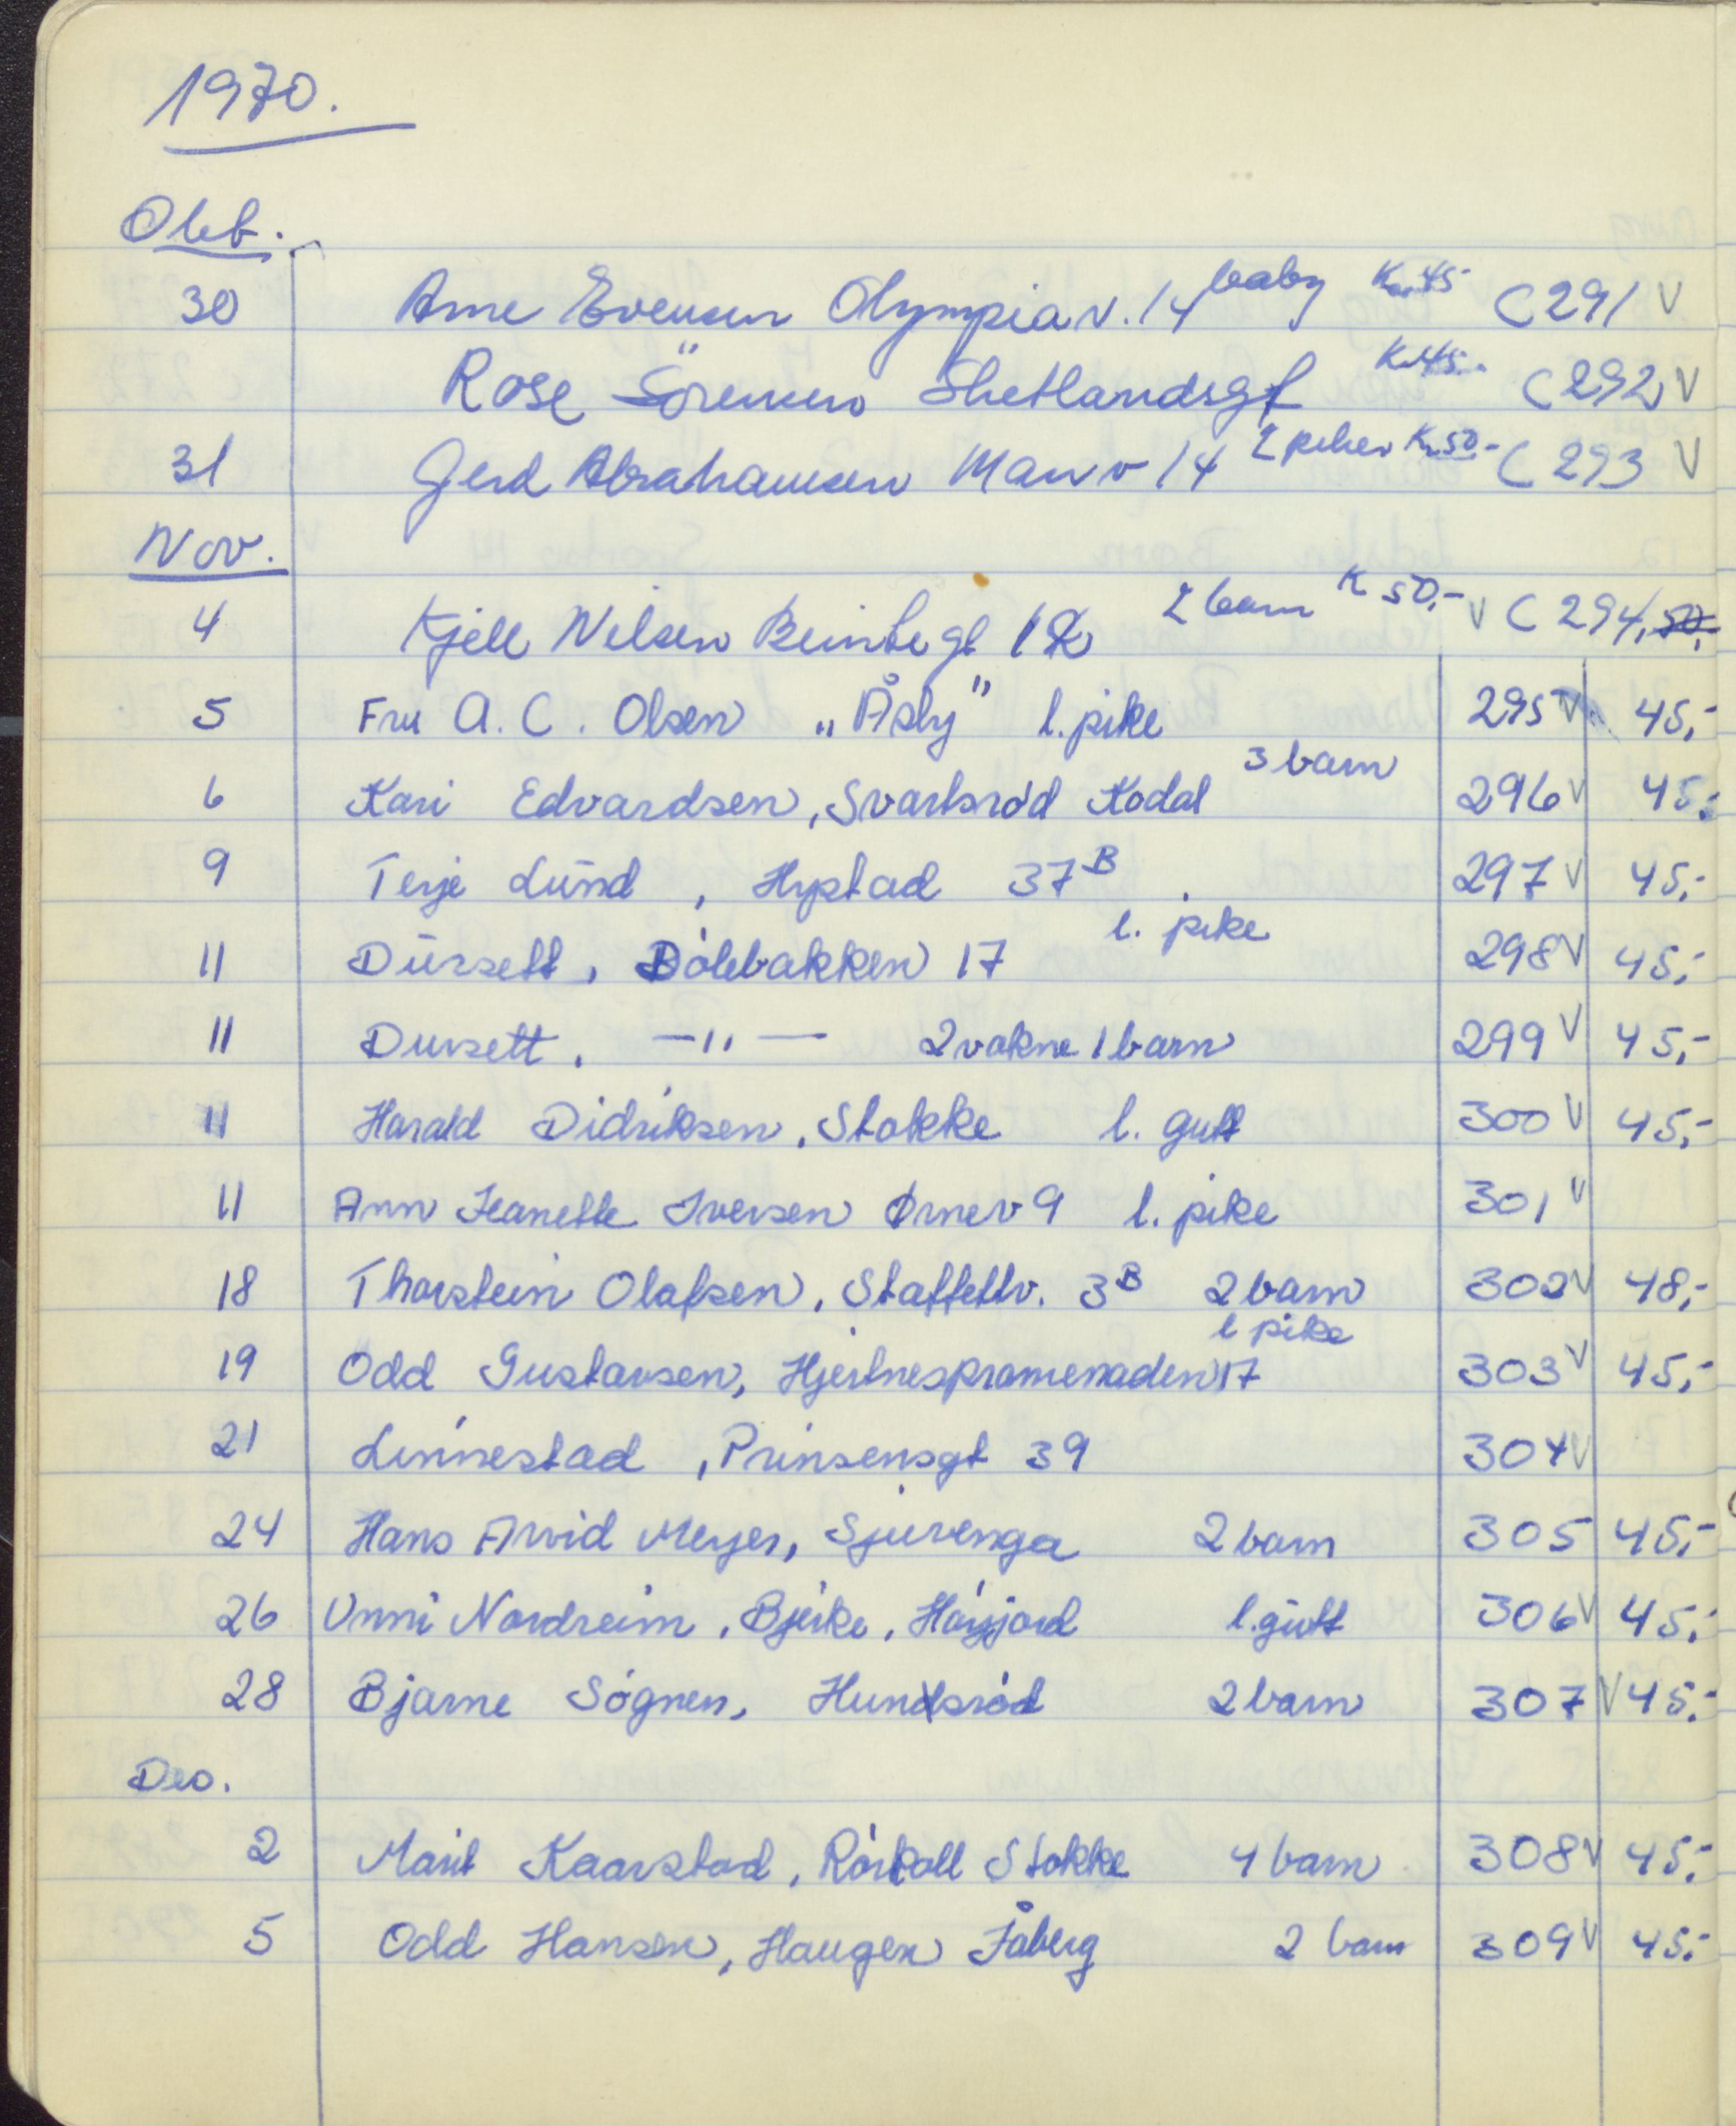 1970.
Okt.
30 Arne Evensen Olympiav. 14 baby K.45- C 291 V
Rose Sörensen Shetlandsgt K.45.- C 292 V
31 Gerd Abrahamsen 14 2 piker K.50.- C 293 V
Nov.
4 Kjell Nilsen gt 2 barn K 50,- V C 294, 50,-
5 Fru A. C. Olsen „Åsly" l. pike 295 V 45,-
6 Kari Edvardsen, Svartsrød Kodal 3 barn 296 V 45,-
9 Terje Lund, Hystad 37B 297 V 45,-
11 Dursett, Dølebakken 17 l. pike 298 V 45,-
11 Dursett. -"- 2 vokne 1 barn 299 V 45,-
11 Harald Didriksen, Stokke l. gutt 300 V 45,-
11 Ann Jeanette Iversen Ørnev 9 l. pike 301 V
18 Thorstein Olafsen, Staffettv. 3B 2 barn 302 V 48,-
19 Odd Gustavsen, Hjertnespromenaden 17 l pike 303 V 45,-
21 Linnestad, Prinsensgt 39 304 V
24 Hans Arvid Meyer, Sjuvenga 2 barn 305 45,-
26 Unni Nordreim, Bjerke, l. gutt 306 V 45,-
28 Bjarne Søgnen, Hundsrød 2 barn 307 V 45,-
Des.
2 Marit Kaarstad, Rørkoll Stokke 4 barn 308 V 45,-
5 Odd Hansen, Haugen Fåberg 2 barn 309 V 45,-